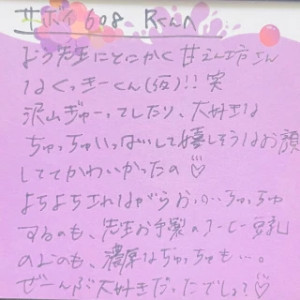 サボイ608 Rくんへ
よう先生にとにかく甘えん坊さん
なくっきーくん(仮)!!笑
沢山ぎゅーってしたり、大好きな
ちゅっちゅいっぱいして嬉しそうなお顔
しててかわいかったの♡
よちよちされながらおっぱいちゅっちゅ
するのも、先生お手製のコーヒー豆乳
のむのも、濃厚なちゅっちゅも…。
ぜーんぶ大好きだったでしょ?♡